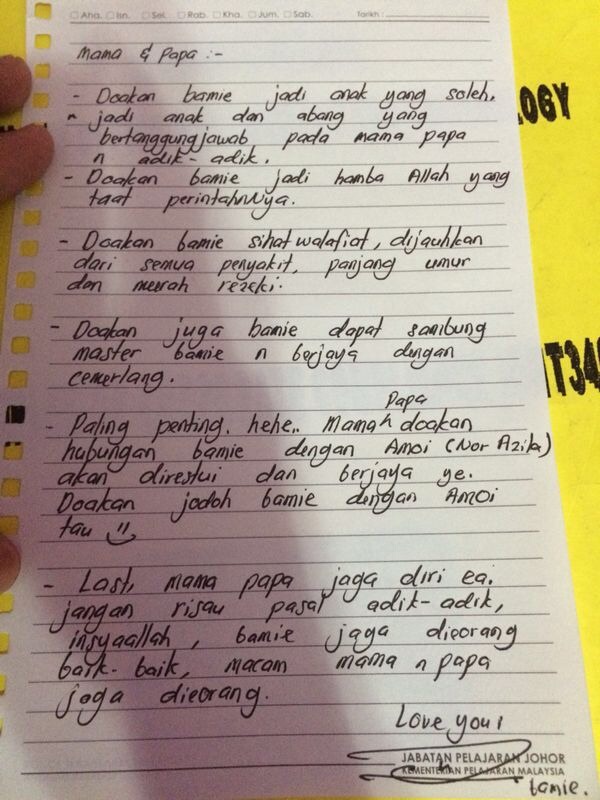 Aha. Isn. Sel. Rab. Kha. Jum. Sab. Tarikh :
Mama & Papa :-
- Doakan bamie jadi anak yang soleh.
n jadi anak dan abang yang
bertanggungjawab pada mama papa
n adik-adik.
- Doakan bamie jadi hamba Allah yang
taat perintahNya.
- Doakan bamie sihat walafiat, dijauhkan
dari semua penyakit, panjang umur
dan murah rezeki.
- Doakan juga bamie dapat sambung
master bamie n berjaya dengan
cemerlang.
- Paling penting. hehe.. Mama n Papa doakan
hubungan bamie dengan Amoi (Nor Azila)
akan direstui dan berjaya ye.
Doakan jodoh bamie dengan AMOI
tau
- Last, mama papa jaga diri ea.
jangan risau pasal adik-adik,
insyaallah, bamie jaga dieorang
baik-baik, macam mama n papa
jaga dieorang.
Love you,
JABATAN PELAJARAN JOHOR
KEMENTERIAN PELAJARAN MALAYSIA
bamie.
OGY
IT34